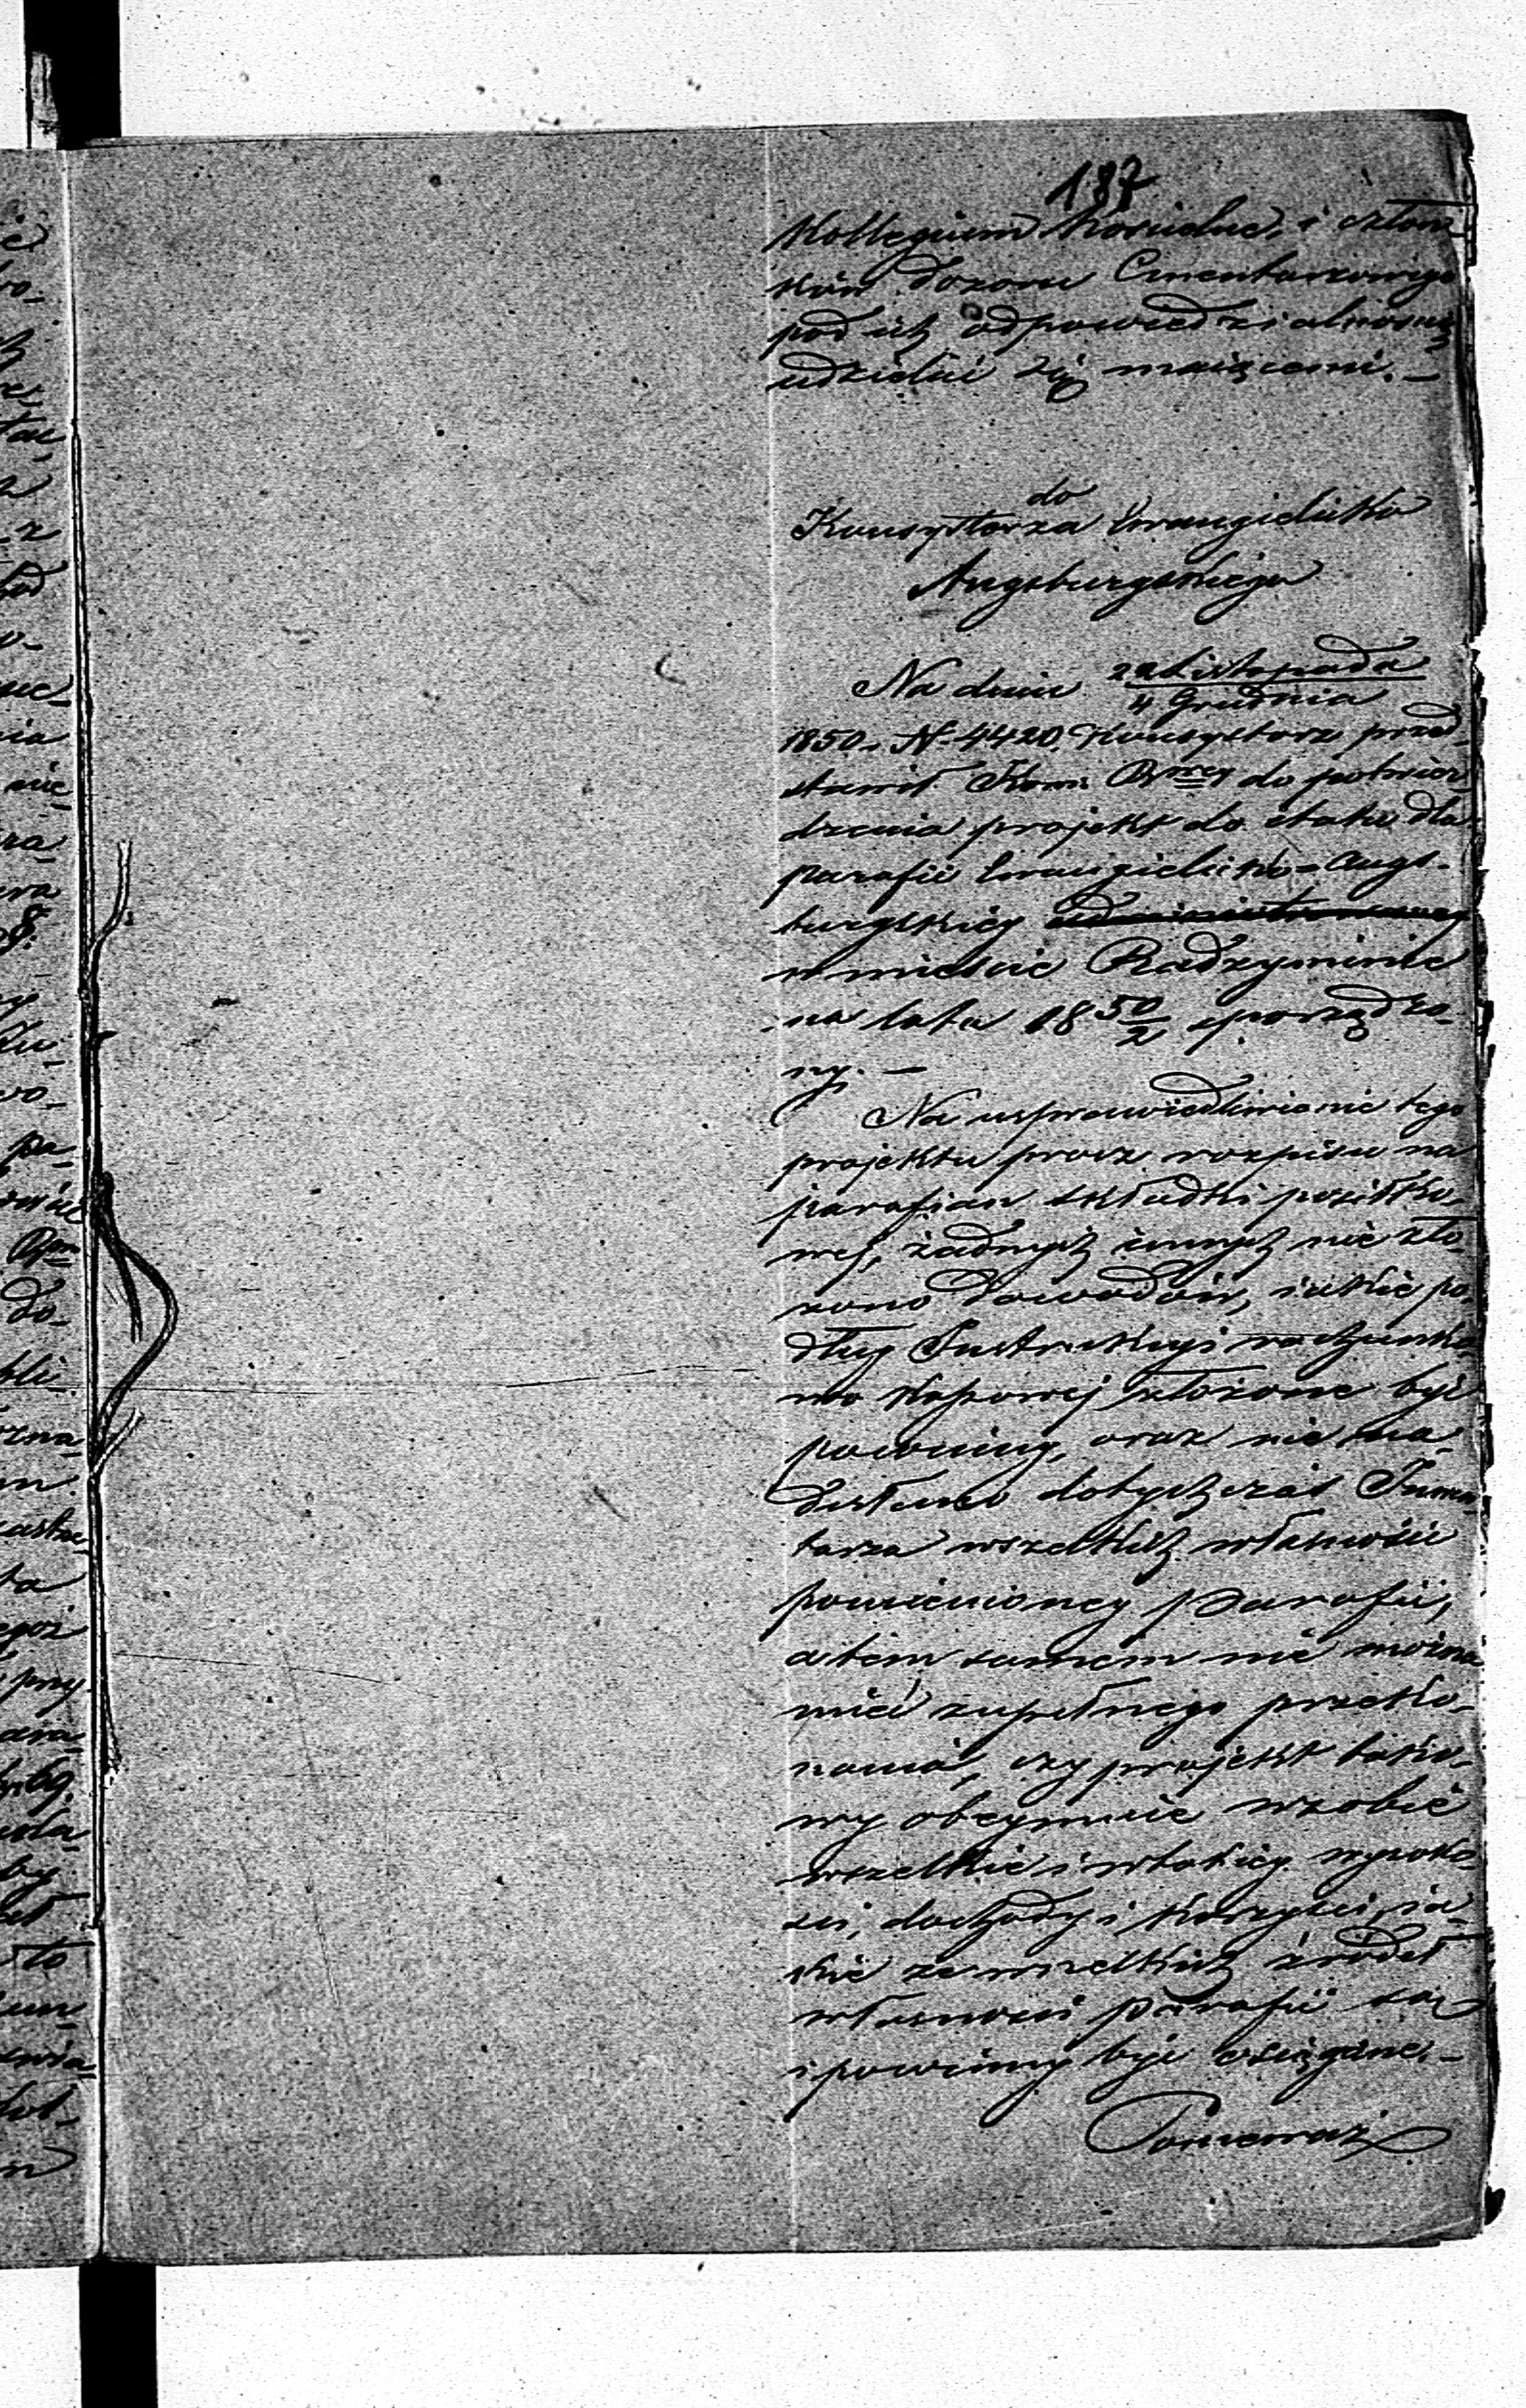 187
Kollegium Kościelne, i człon-
ków Dozoru Cmentarzowego
pod ich odpowiedzialnością
udzielić się maiącemi. —
do
Konsystorza Ewangielicko
Augsburgskiego
Na dniu 22 Listopada
4 Grudnia
1850 r. N. 4420. Konsystorz przed-
stawił Kom: Rząey do potwier-
dzenia projekt do etatu dla
parafii Ewangielicko-Augs-
burgskiéy
w mieście Radzyminie
na lata 18 50/2 sporządzo-
ny. —
Na usprawiedliwienie tego
projektu prócz rozpisu na
parafian składki posiłko-
wej, żadnych innych nie zło-
żono dowodów, iakie po-
dług Instrukcyi rachunko-
wo kassowej złożone być
powinny, oraz nie na-
desłano dotychczas Inwen-
tarza wszelkich własności
pomienioney Parafii,
a tém samem nie można
mieć zupełnego przeko-
nania, czy projekt tako-
wy obeymuie w sobie
wszelkie i w takiey wysoko-
ści, dochody i korzyści, ia-
kie ze wszelkich źródeł
własności parafii są
i powinny być osiągane. —
Ponieważ